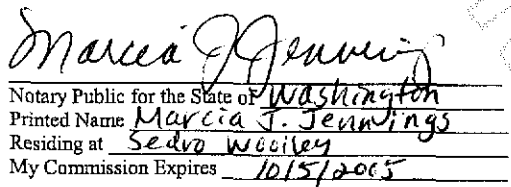 Marcia J Jennings
Notary Public for the State of Washington
Printed Name Marcia J. Jennings
Residing at Sedro Woolley
My Commission Expires 10/5/2005